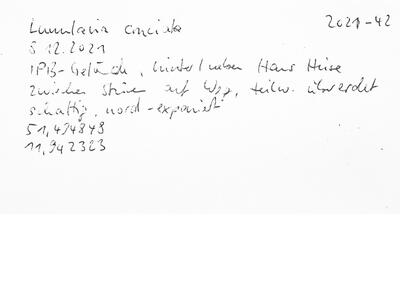 Lunularia cruciata 2021-42
8.12.2021
IPB-Gelände, hinter/neben Haus Heise
zwischen Steinen auf Weg, teilw. übererdet
schattig, nord-exponiert
51,494849
11,942323